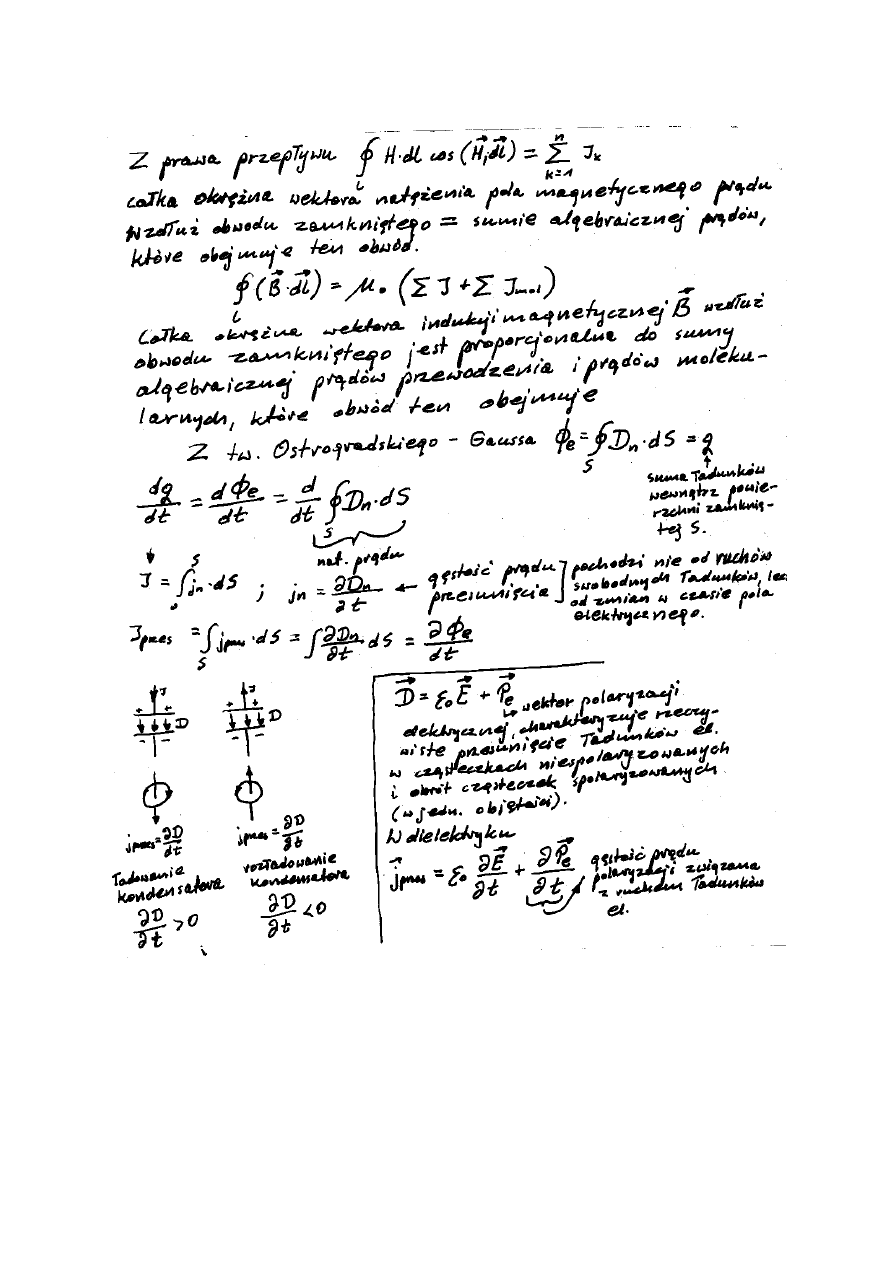 Z prawa przepływu ∮_L H·dl cos(H⃗, dl⃗) = Σ_{k=1}^{n} J_k
całka okrężna wektora natężenia pola magnetycznego prądu
wzdłuż obwodu zamkniętego = sumie algebraicznej prądów,
które obejmuje ten obwód.
∮_L (B⃗·dl⃗) = μ₀ (Σ J + Σ J_mol)
Całka okrężna wektora indukcji magnetycznej B⃗ wzdłuż
obwodu zamkniętego jest proporcjonalna do sumy
algebraicznej prądów przewodzenia i prądów moleku-
larnych, które obwód ten obejmuje
Z tw. Ostrogradskiego - Gaussa ϕ_e = ∮_S D_n·dS = q
↑
suma ładunków
wewnątrz powie-
rzchni zamknię-
tej S.
dq/dt = dΦ_e/dt = d/dt ∮_S D_n·dS
nat. prądu
J = ∫ j_n·dS ; j_n = ∂D_n/∂t ← gęstość prądu
przesunięcia
pochodzi nie od ruchów
swobodnych ładunków, lec
od zmian w czasie pola
elektrycznego.
J_przes = ∫_S j_przes·dS = ∫ ∂D_n/∂t dS = ∂Φ_e/dt
J
+ +
D
- -
j_przes = ∂D/dt
ładowanie
kondensatora
∂D/∂t > 0
J
+ +
D
- -
j_przes = ∂D/∂t
rozładowanie
kondensatora
∂D/∂t < 0
D⃗ = ε₀E⃗ + P⃗_e
↳ wektor polaryzacji
elektrycznej, charakteryzuje rzeczy-
wiste przesunięcie ładunków el.
w cząsteczkach niespolaryzowanych
i obrót cząsteczek spolaryzowanych
(w jedn. objętości).
W dielektryku
j⃗_przes = ε₀ ∂E⃗/∂t + ∂P⃗_e/∂t
gęstość prądu
polaryzacji związana
z ruchem ładunków
el.